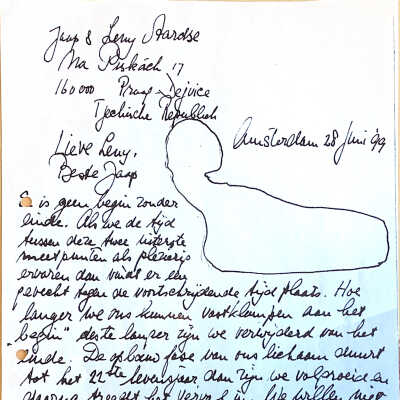 Jaap & Leny Aardse
Na Piskách 17
160000 Praag Dejvice
Tjechische Republiek
Amsterdam 28 Juni '99
Lieve Leny,
Beste Jaap
Er is geen begin zonder
einde. Als we de tijd
tussen deze twee uiterste
meetpunten als plezierig
ervaren dan vindt er een
gevecht tegen de voortschrijdende tijd plaats. Hoe
langer we ons kunnen vastklampen aan het
"begin" deste langer zijn we verwijderd van het
einde. De opbouw fase van ons lichaam duurt
tot het 22ste levensjaar dan zijn we volgroeid en
daarna treedt het verval in. We willen